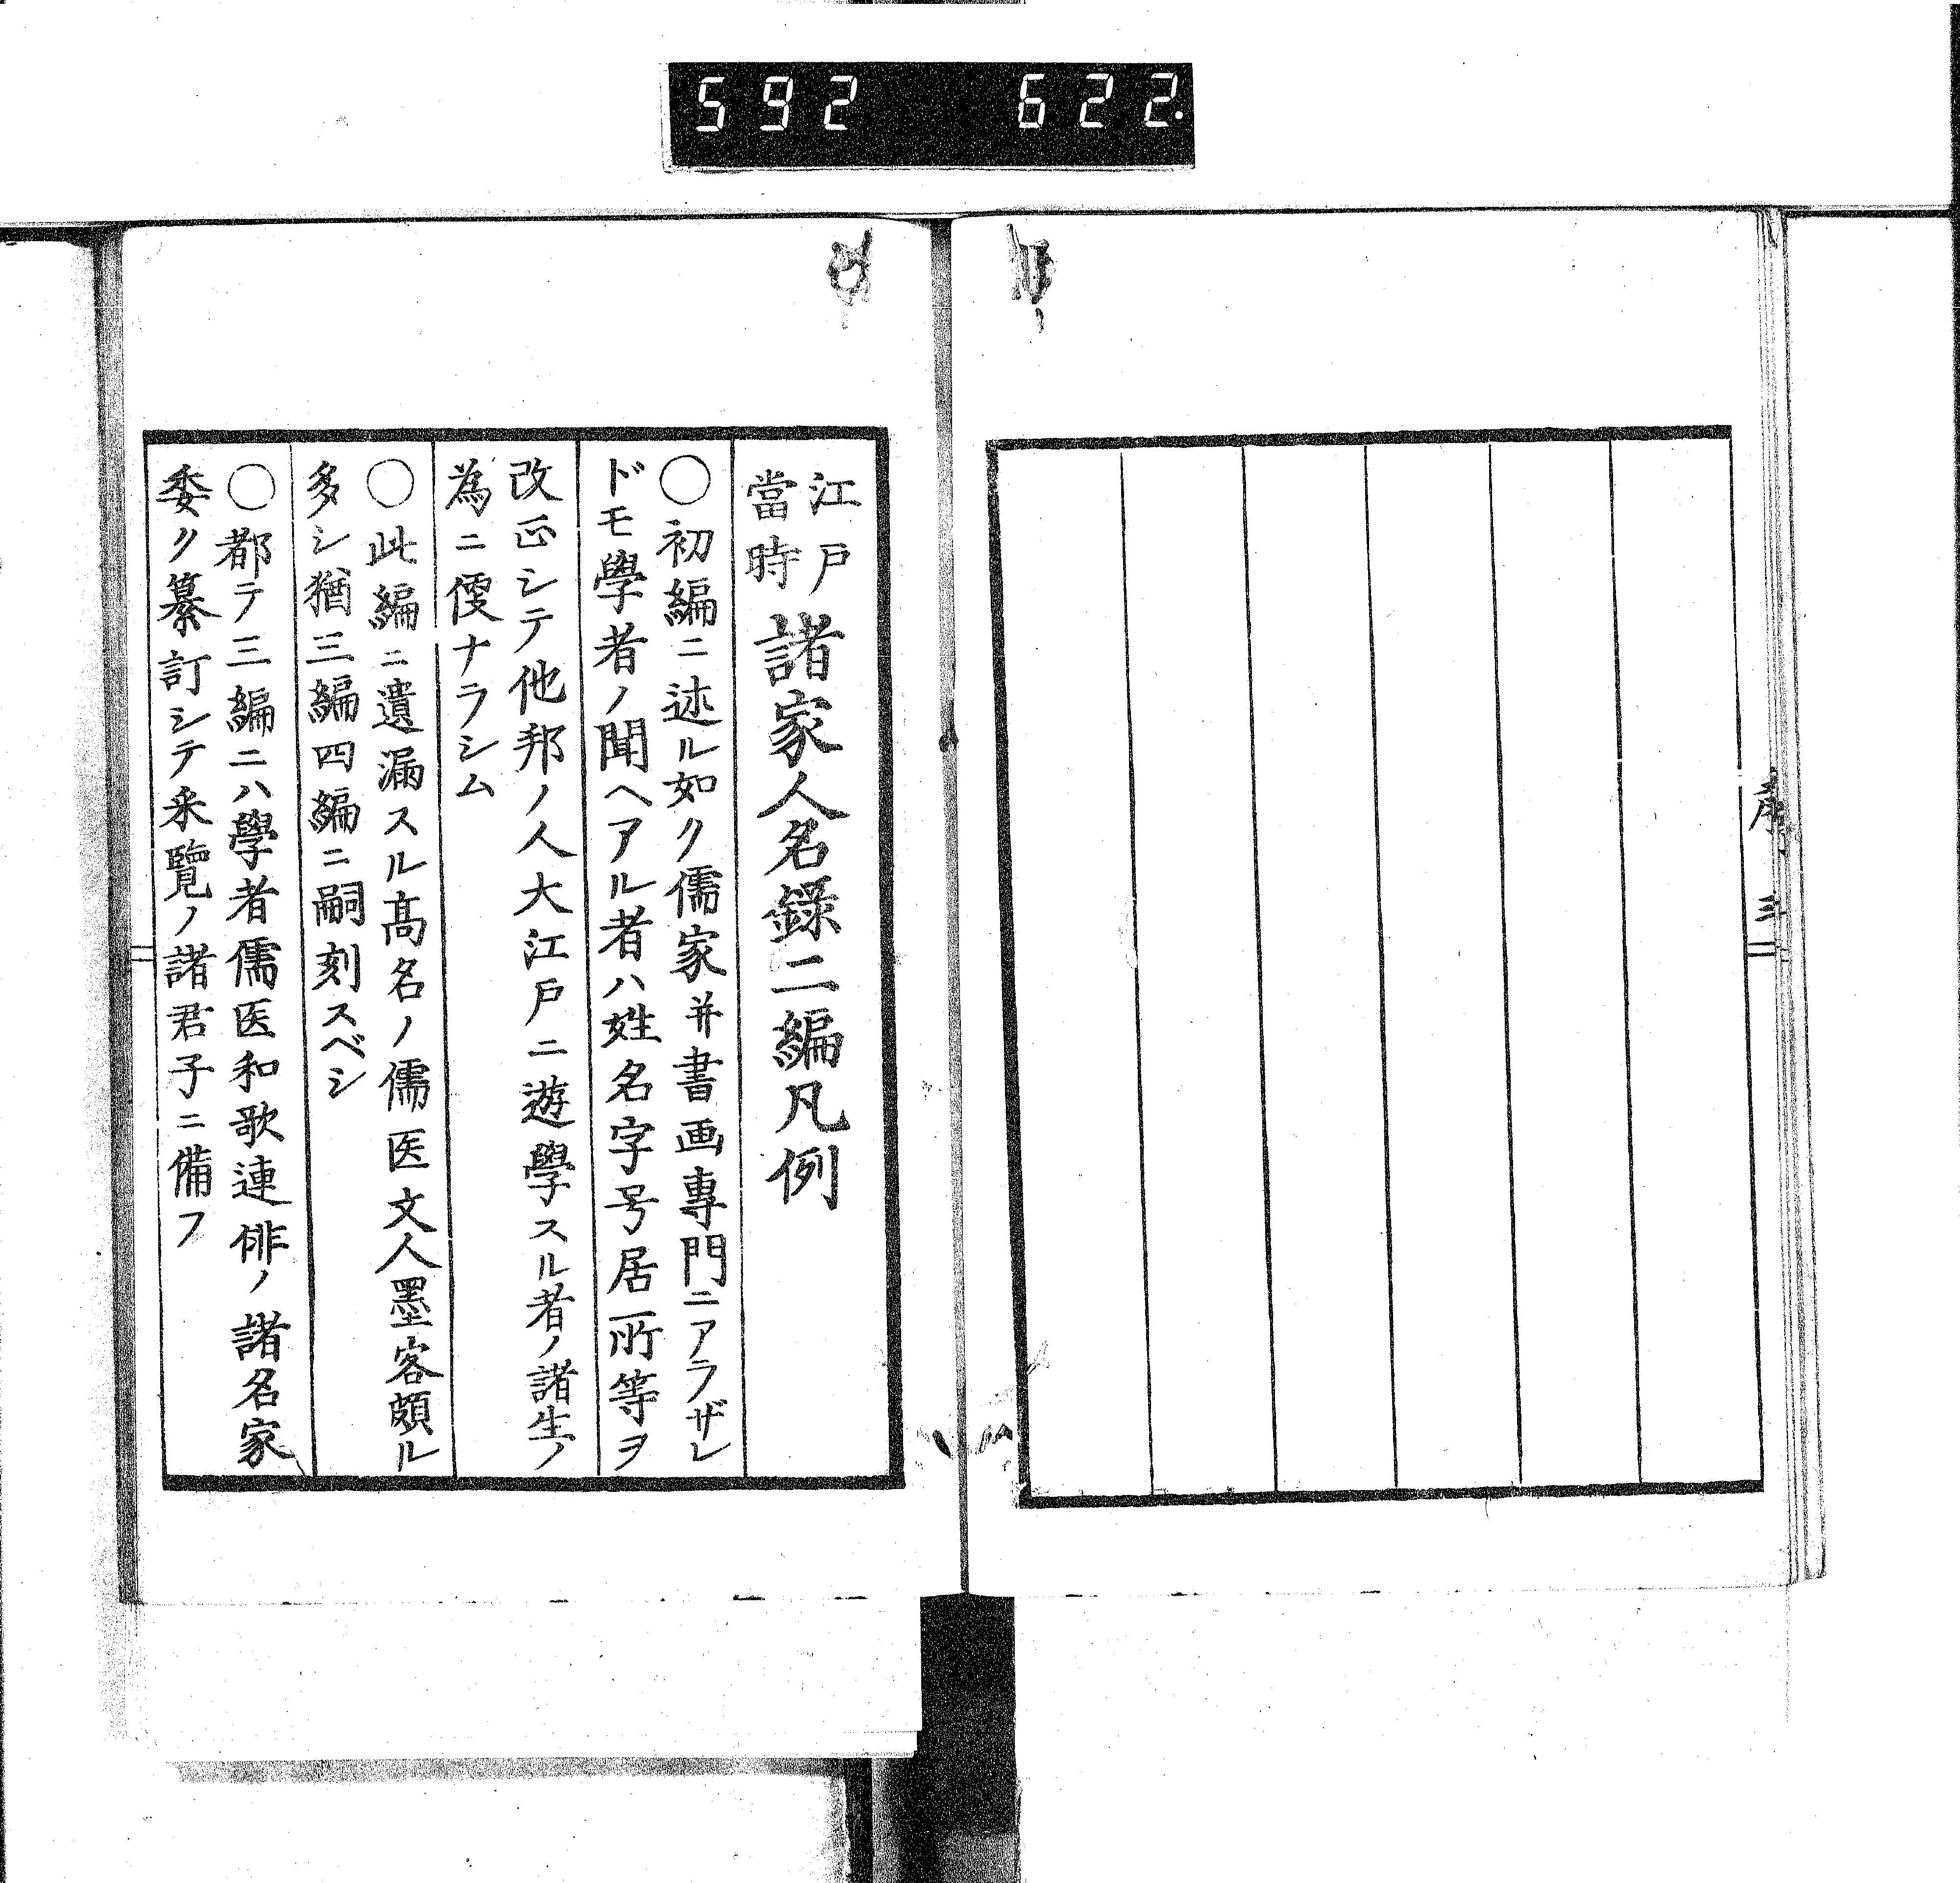 592 622.
序 三
江戸當時諸家人名錄二編凡例
〇初編ニ述ル如ク儒家并書画專門ニアラザレ
ドモ學者ノ聞ヘアル者ハ姓名字号居所等ヲ
改正シテ他邦ノ人大江戸ニ遊學スル者ノ諸生ノ
為ニ便ナラシム
〇此編ニ遺漏スル髙名ノ儒医文人墨客頗ル
多シ猶三編四編ニ嗣刻スベシ
〇都テ三編ニハ學者儒医和歌連俳ノ諸名家
委ク纂訂シテ来覽ノ諸君子ニ備フ